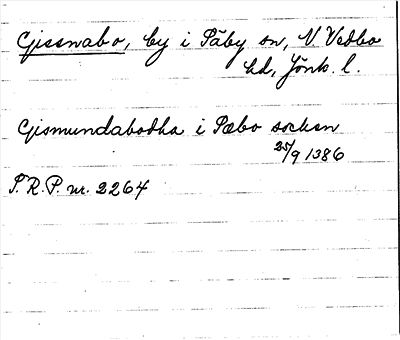 Gissnabo, by i Säby sn, N. Vedbo
hd, Jönk. l.
Gismundabodha i Sæbo socken
25/9 1386
S.R.P. nr. 2264